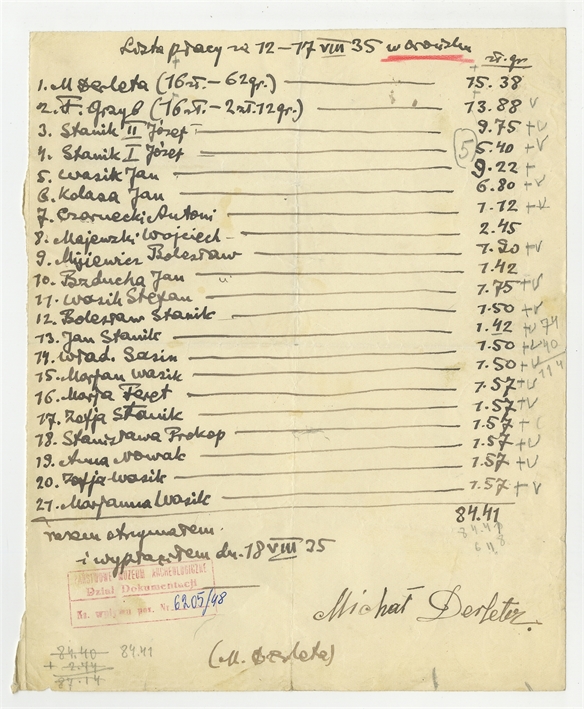 Lista płacy za 12–17 VIII 35 w
zł. gr
1. M Derleta (16zł.–62gr.) 15.38
2. F. Grzyb (16zł.–2zł.12gr.) 13.88 v
3. Stanik II Józef 9.75 +v
4. Stanik I Józef 5.40 +v
5. Wasik Jan 9.22 +
6. Kolasa Jan 6.80 +v
7. Czarnecki Antoni 1.12 +v
8. Majewski Wojciech 2.45
9. Bolesław 1.20 +v
10. Jan 1.42
11. Wasik Stefan 1.75 +v
12. Bolesław Stanik 1.50 +v
13. Jan Stanik 1.42 +v 74
14. Wład. Sasin 1.50 +v 40
15. Marjan Wasik 1.50 +v 114
16. Marja Feret 1.57 +v
17. Zofja Stanik 1.57 +v
18. Stanisława Prokop 1.57 +
19. Anna Nowak 1.57 +v
20. Zofja Wasik 1.57 +v
21. Marjanna Wasik 1.57 +v
84.41
84.41
razem otrzymałem
i wypłaciłem dn. 18 VIII 35
PAŃSTWOWE MUZEUM ARCHEOLOGICZNE
Dział Dokumentacji
Nr. wpływu poz. Nr. 6205/48
Michał Derleta.
(M. Derleta)
84.40 84.41
+ 2.74
87.14